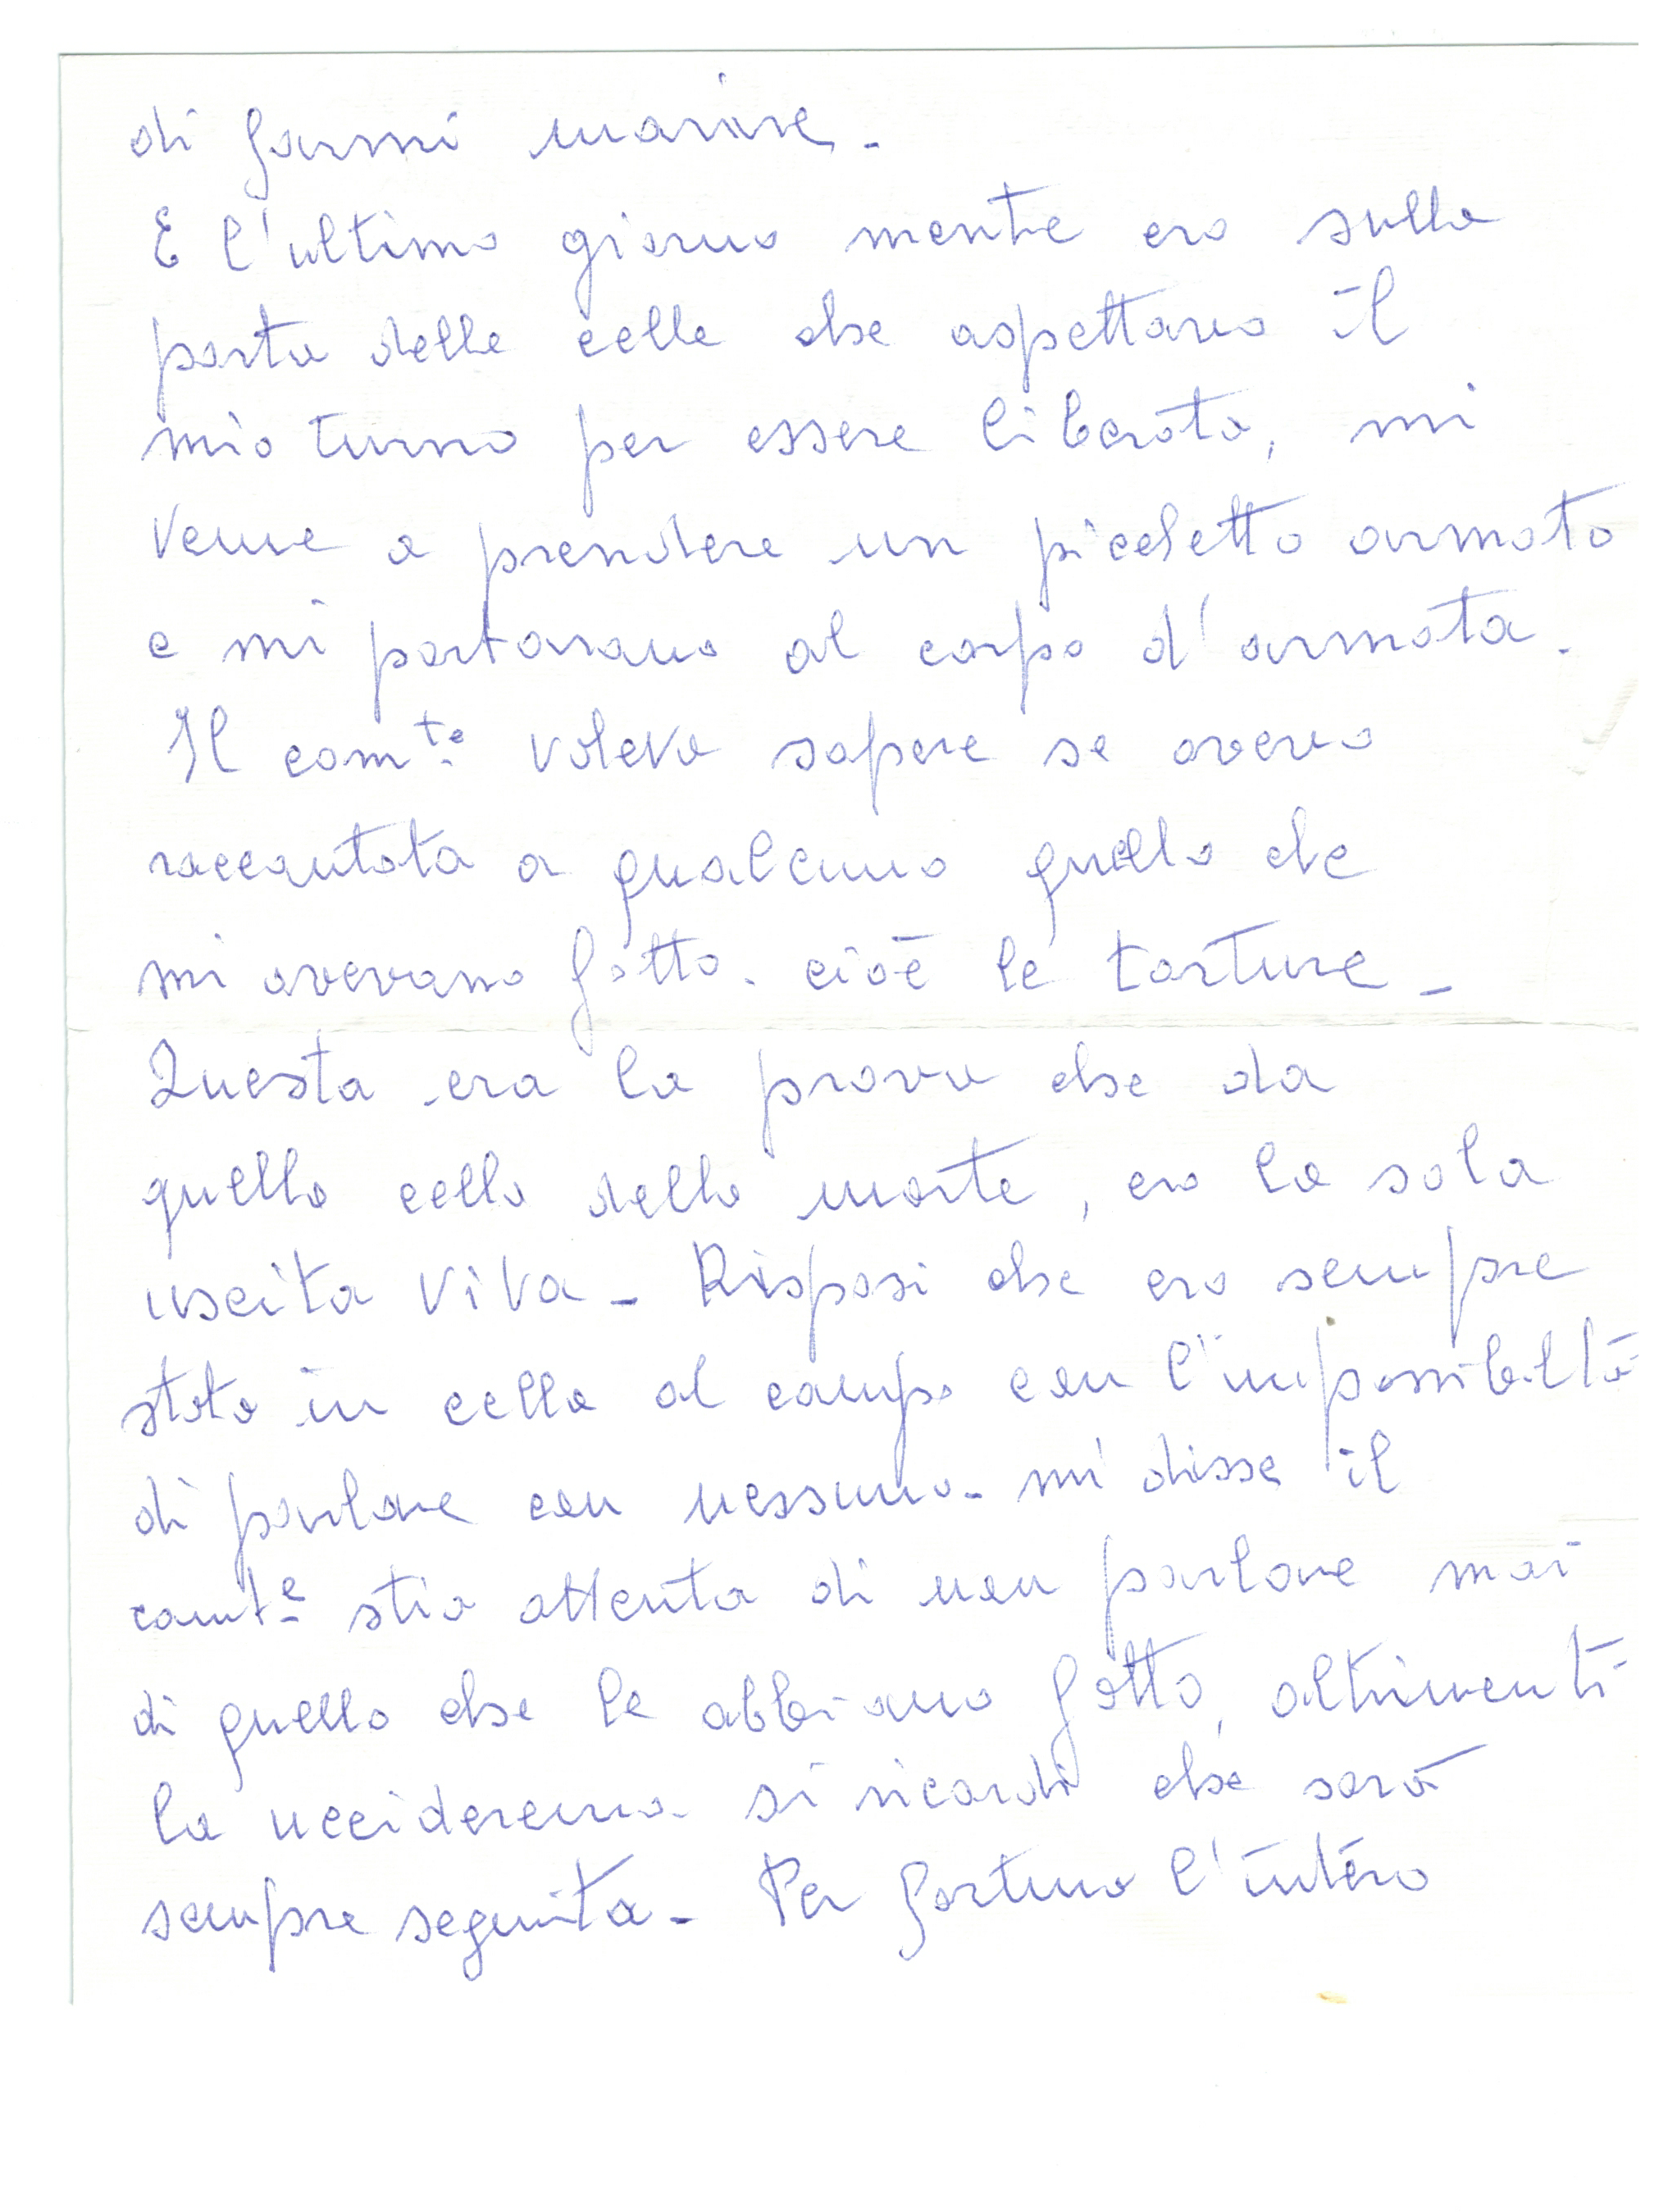 di farmi morire.
E l'ultimo giorno mentre ero sulla
porta delle celle che aspettavo il
mio turno per essere liberata, mi
venne a prendere un picchetto armato
e mi portarono al corpo d'armata.
Il com.te voleva sapere se avevo
raccontata a qualcuno quello che
mi avevano fatto. cioè le torture -
Questa era la prova che da
quella cella della morte, ero la sola
uscita viva - Risposi che ero sempre
stata in cella al campo con l'impossibiltà
di parlare con nessuno - mi disse il
comte stia attenta di non parlare mai
di quello che le abbiamo fatto, altrimenti
la uccideremo - si ricordi che sarà
sempre seguita - Per fortuna l'intero